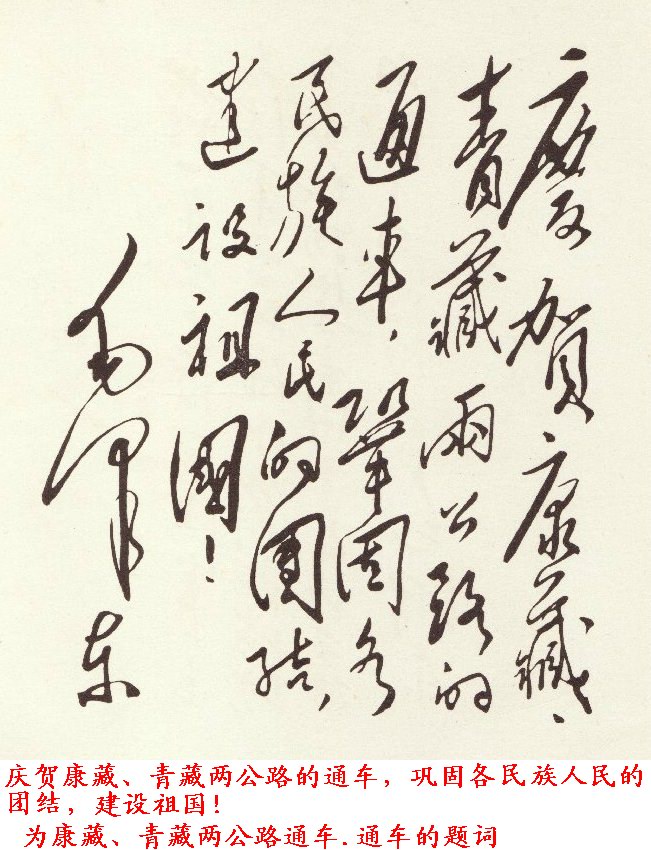 慶賀康藏、
青藏兩公路的
通車，鞏固各
民族人民的團結，
建設祖國！
毛泽东
庆贺康藏、青藏两公路的通车，巩固各民族人民的
团结，建设祖国！
为康藏、青藏两公路通车.通车的题词